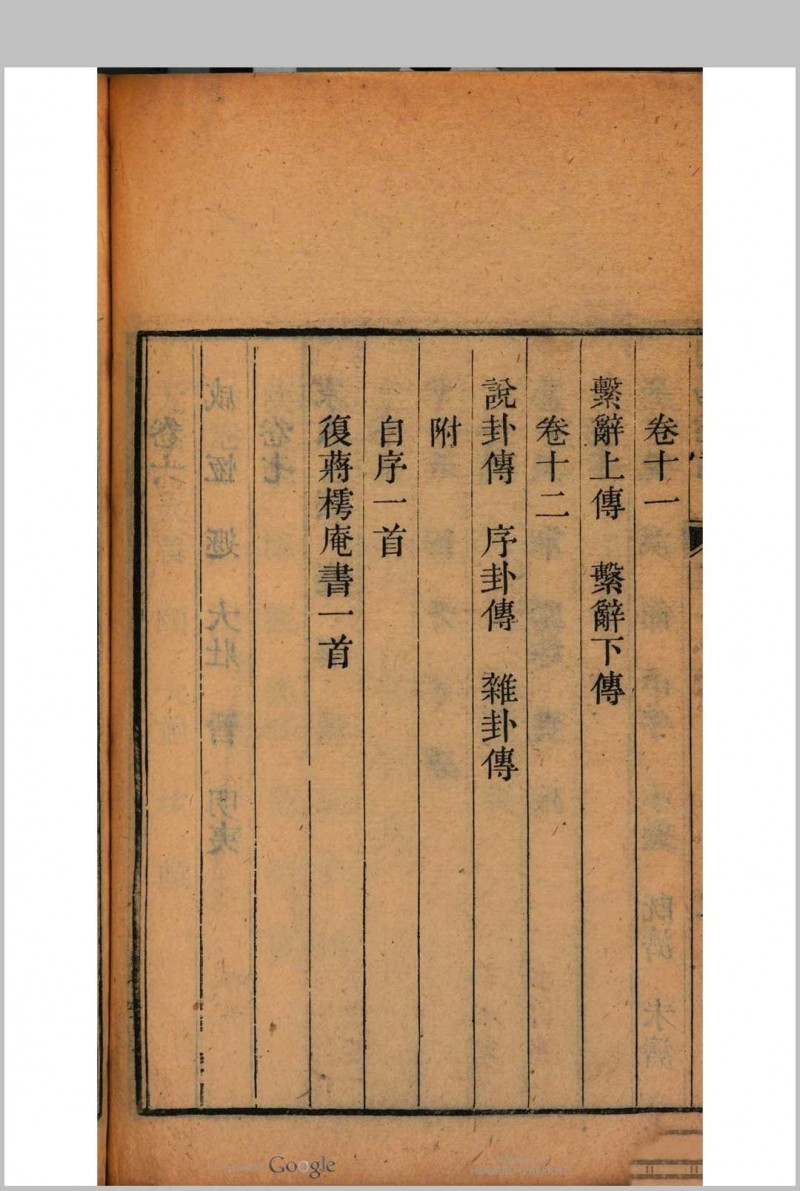 卷十一
繫辭上傳　繫辭下傳
卷十二
說卦傳　序卦傳　雜卦傳
附
自序一首
復蔣樗庵書一首
Google